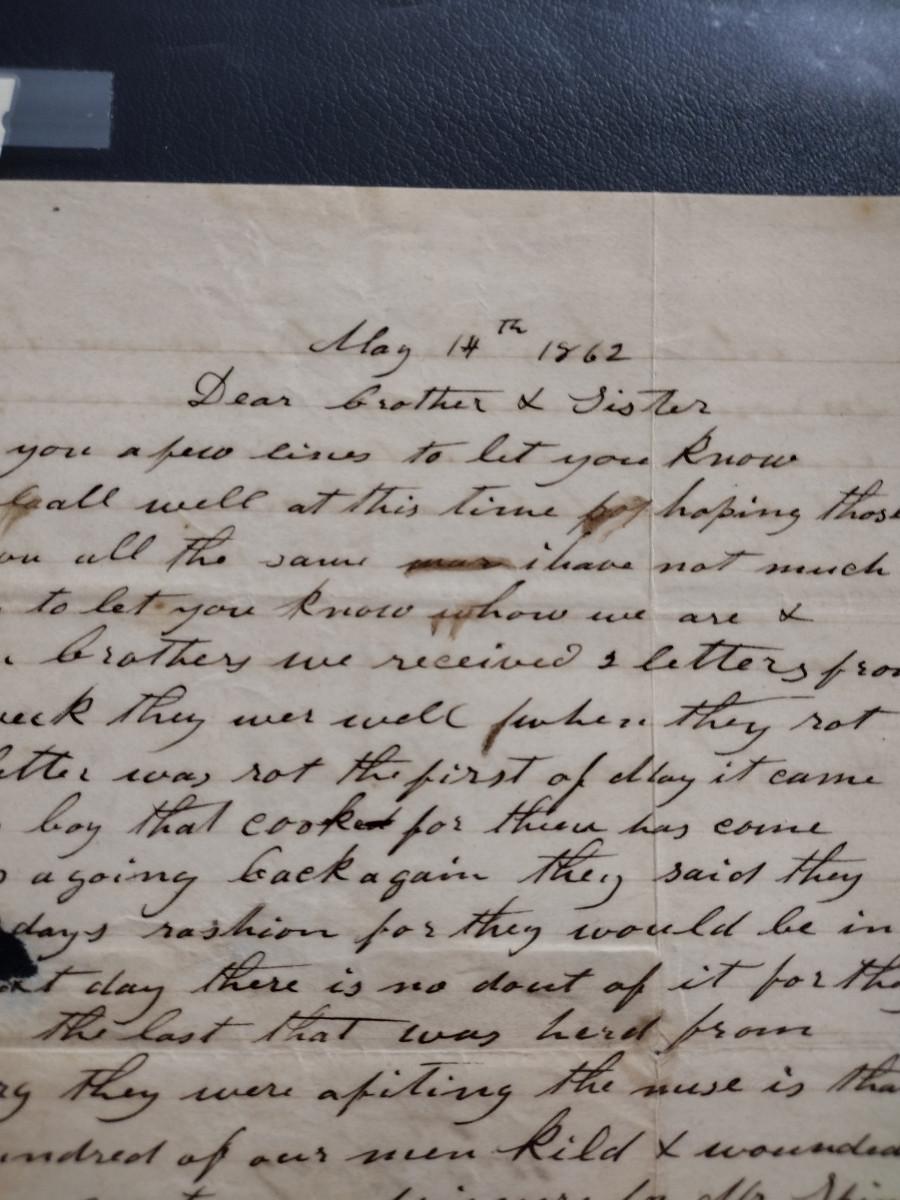 May 14th 1862
Dear brother & Sister
you a few lines to let you know
all well at this time hoping those
all the same i have not much
to let you know whow we are &
brothers we received 2 letters from
they wer well when they rot
letter was rot the first of May it came
boy that cooked for them has come
a going back again they said they
days rashion for they would be in
day there is no dout of it for the
the last that was herd from
they were afiting the nuse is tha
undred of our men kild & wounded